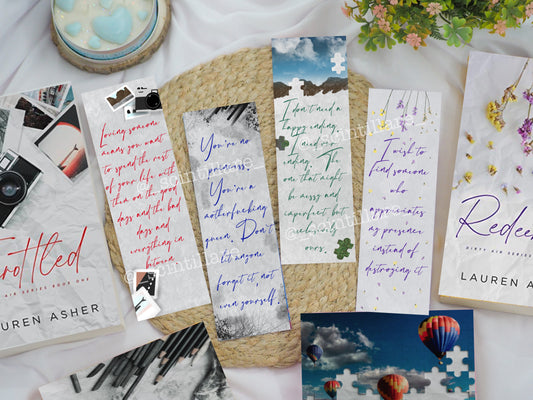 Throttled
DIRTY AIR SERIES BOOK ONE
LAUREN ASHER
Loving someone
means you want
to spend the rest
of your life with
them on the good
days and the bad
days and
everything in
between
You're no
one's
You're a
motherfucking
queen. Don't
let anyone
forget it, not
even yourself.
I don't need a
happy ending.
I need our
ending. The
one that might
be messy and
imperfect but
technically
ours.
I wish to
find someone
who
appreciates
my presence
instead of
destroying it
Redee
DIRTY AIR SERIES
LAUREN ASHER
@scintillare_